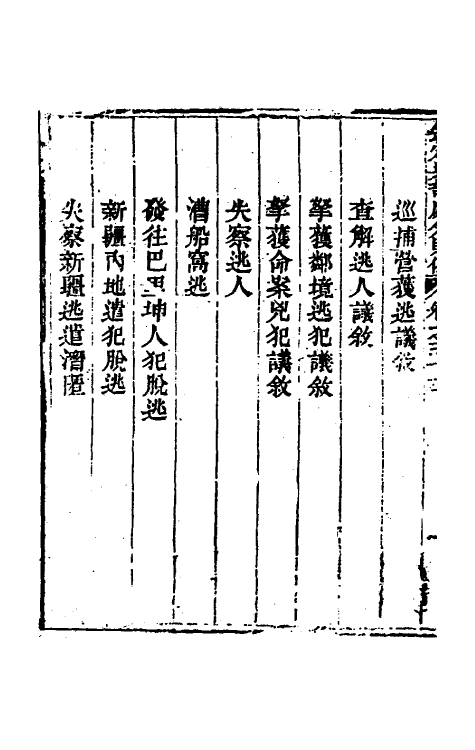 巡捕營獲逃議敘
查解逃人議敘
拏獲鄰境逃犯議敘
拏獲命案兇犯議敘
失察逃人
漕船窩逃
發往巴里坤人犯脫逃
新疆內地遣犯脫逃
失察新疆逃遣潛匿